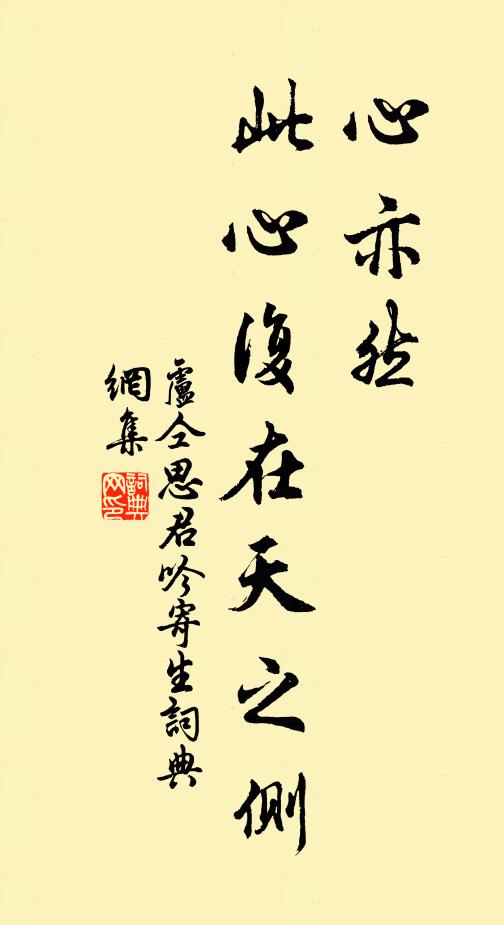 心亦然
此心復在天之側
盧仝思君吟寄生詞典
網集
詞典
网印